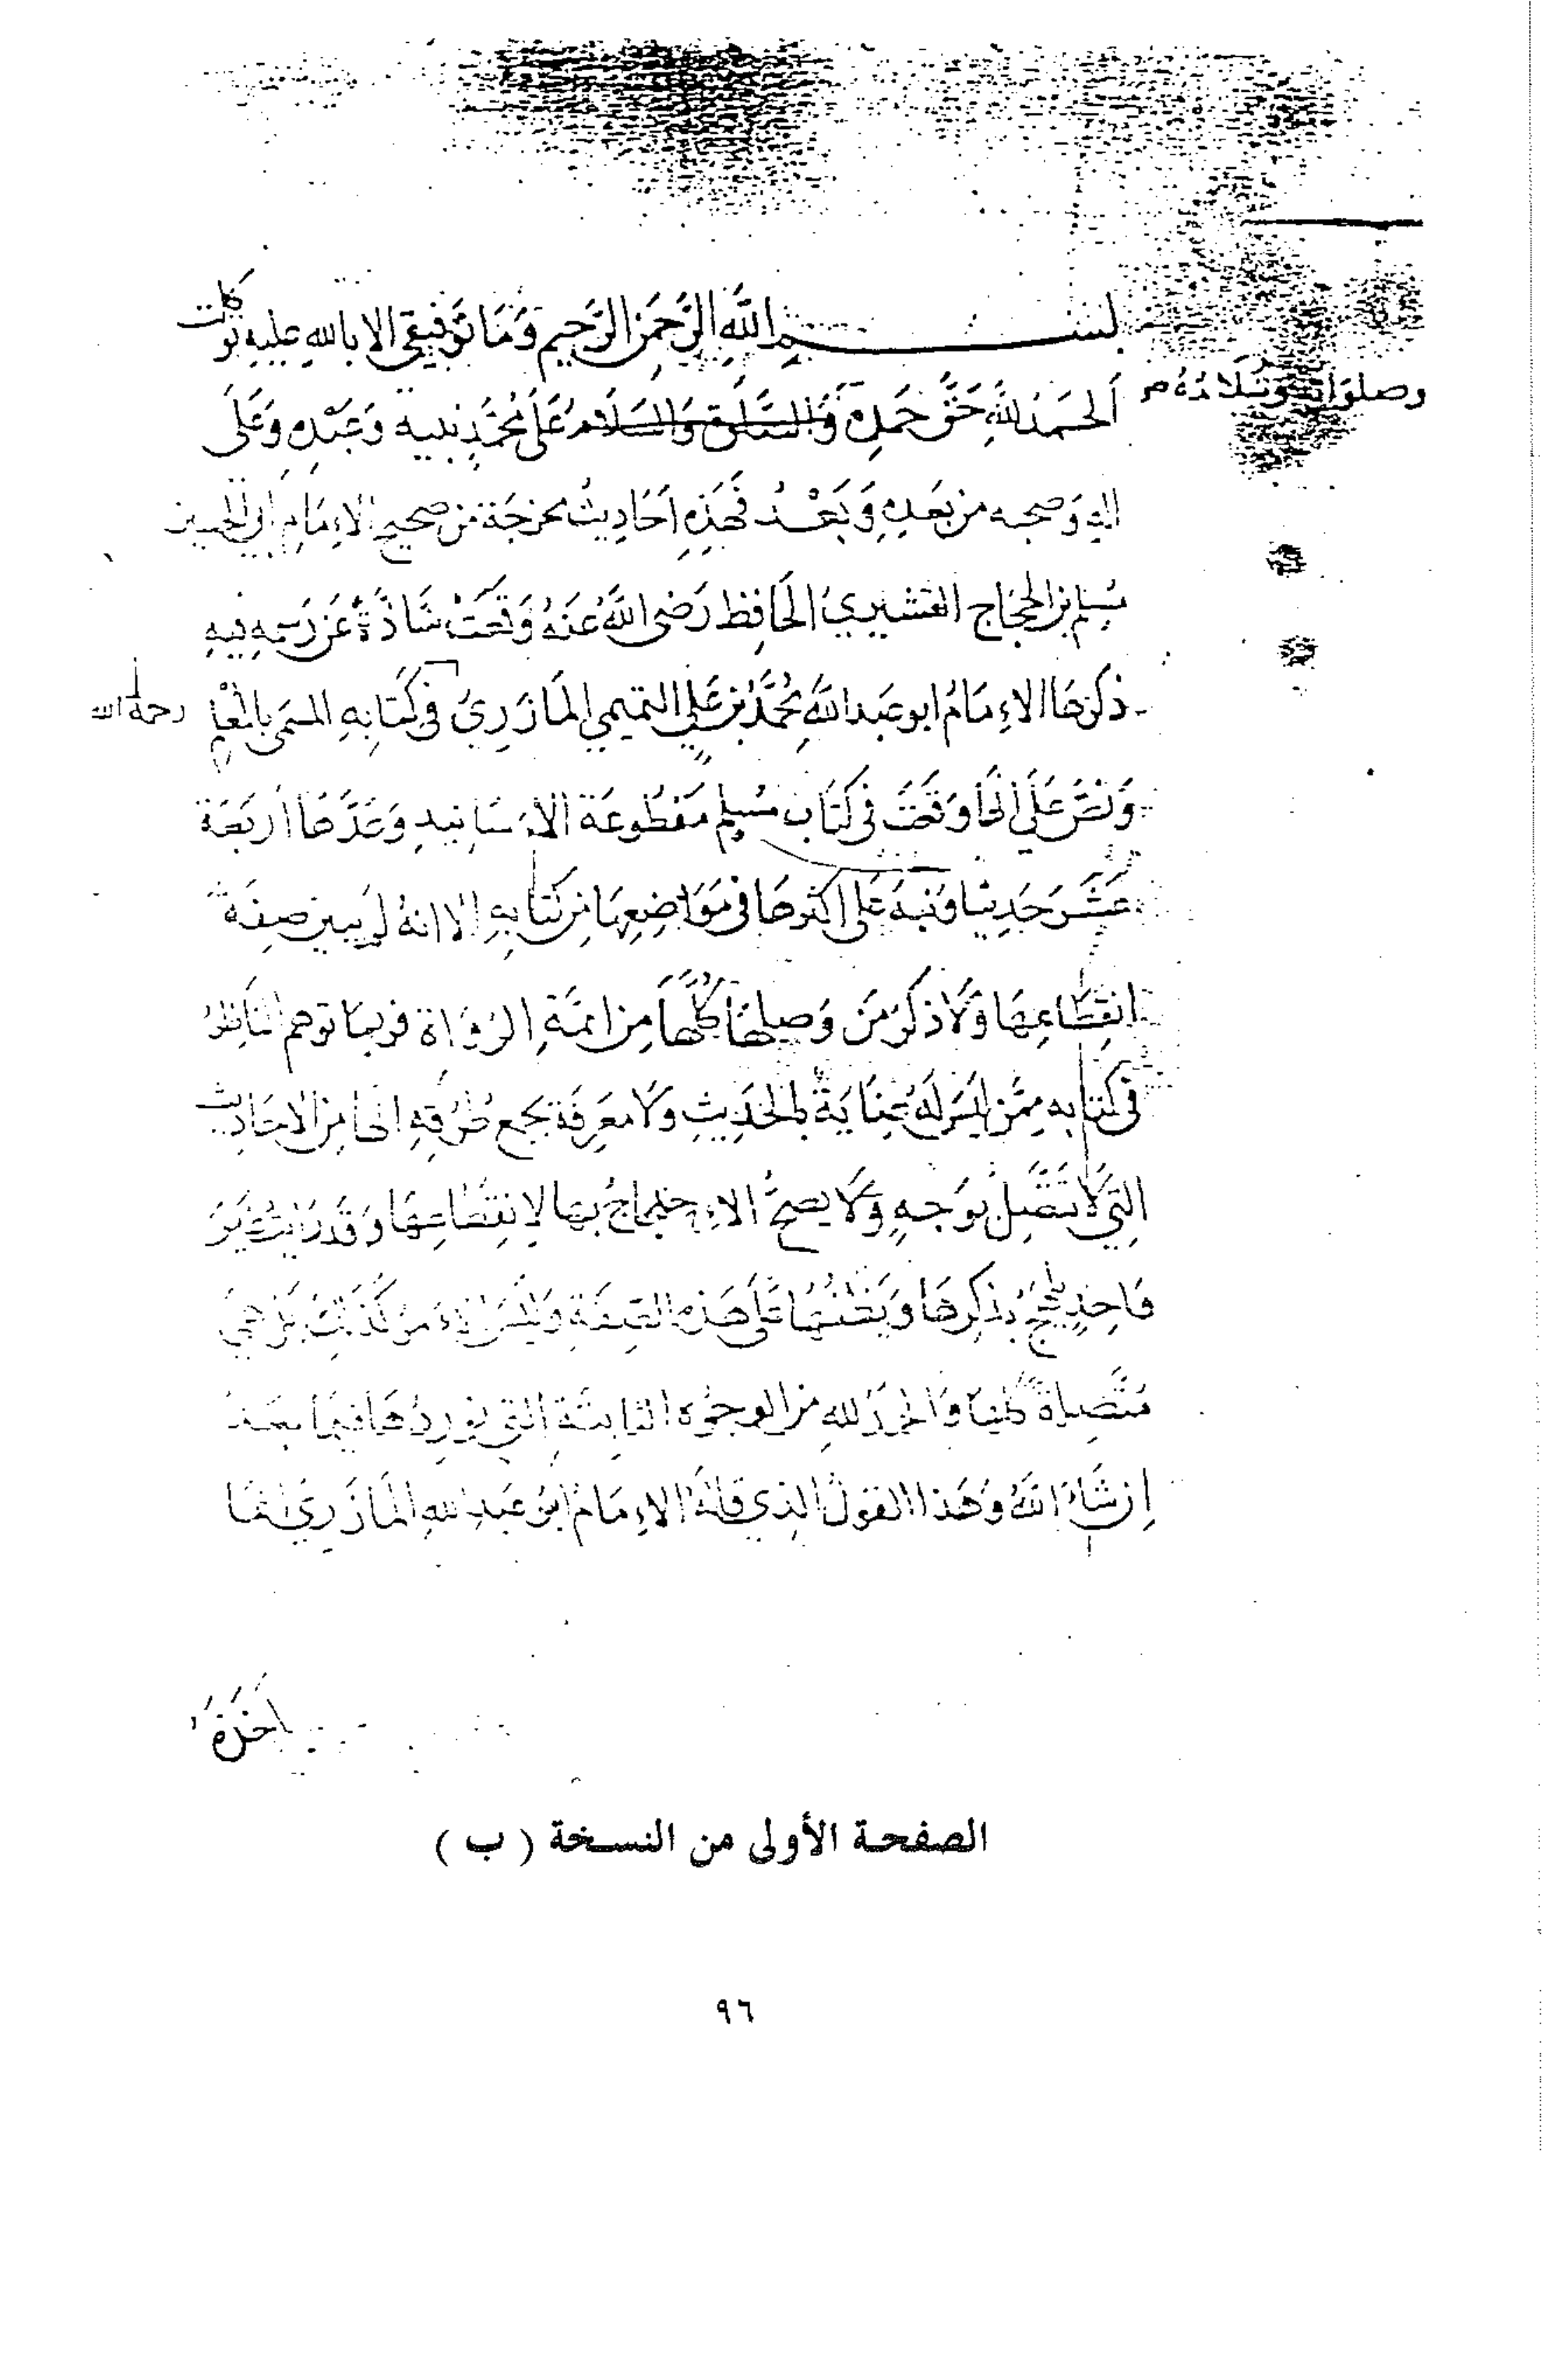 بسم الله الرحمن الرحيم وما توفيقي الا بالله عليه توكلت
الحمد لله حق حمده والصلاة والسلام على محمد نبيه وعبده وعلى
وصلواته وسلامه
اله وصحبه من بعده وبعد فهذه احاديث مخرجة من صحيح الإمام ابي الحسين
مسلم بن الحجاج القشيري الحافظ رضي الله عنه وقعت شاذة عن رسمه فيه
ذكرها الإمام ابو عبد الله محمد بن علي التميمي المازري في كتابه المسمى بالمعلم رحمه الله
ونص على انها وقعت في كتاب مسلم مقطوعة الأسانيد وعدها أربعة
عشر حديثا ونبه على اكثرها في مواضعها من كتابه الا انه لم يبين صفة
انقطاعها ولا ذكر من وصلها كلها من ائمة الرواة فربما توهم الناظر
في كتابه ممن ليس له عناية بالحديث ولا معرفة بجمع طرقه انها من الاحاديث
التي لا تتصل بوجه ولا يصح الإحتجاج بها لانقطاعها وقد رايت غير
واحد يلهج بذكرها ويظنها على هذه الصفة وليس الامر كذلك بل هي
متصلة كلها والحمد لله من الوجوه الثابتة التي نوردها فيما بعد
إن شاء الله وهذا القول الذي قاله الإمام ابو عبد الله المازري انما
اخذه
الصفحة الأولى من النسخة ( ب )
٩٦